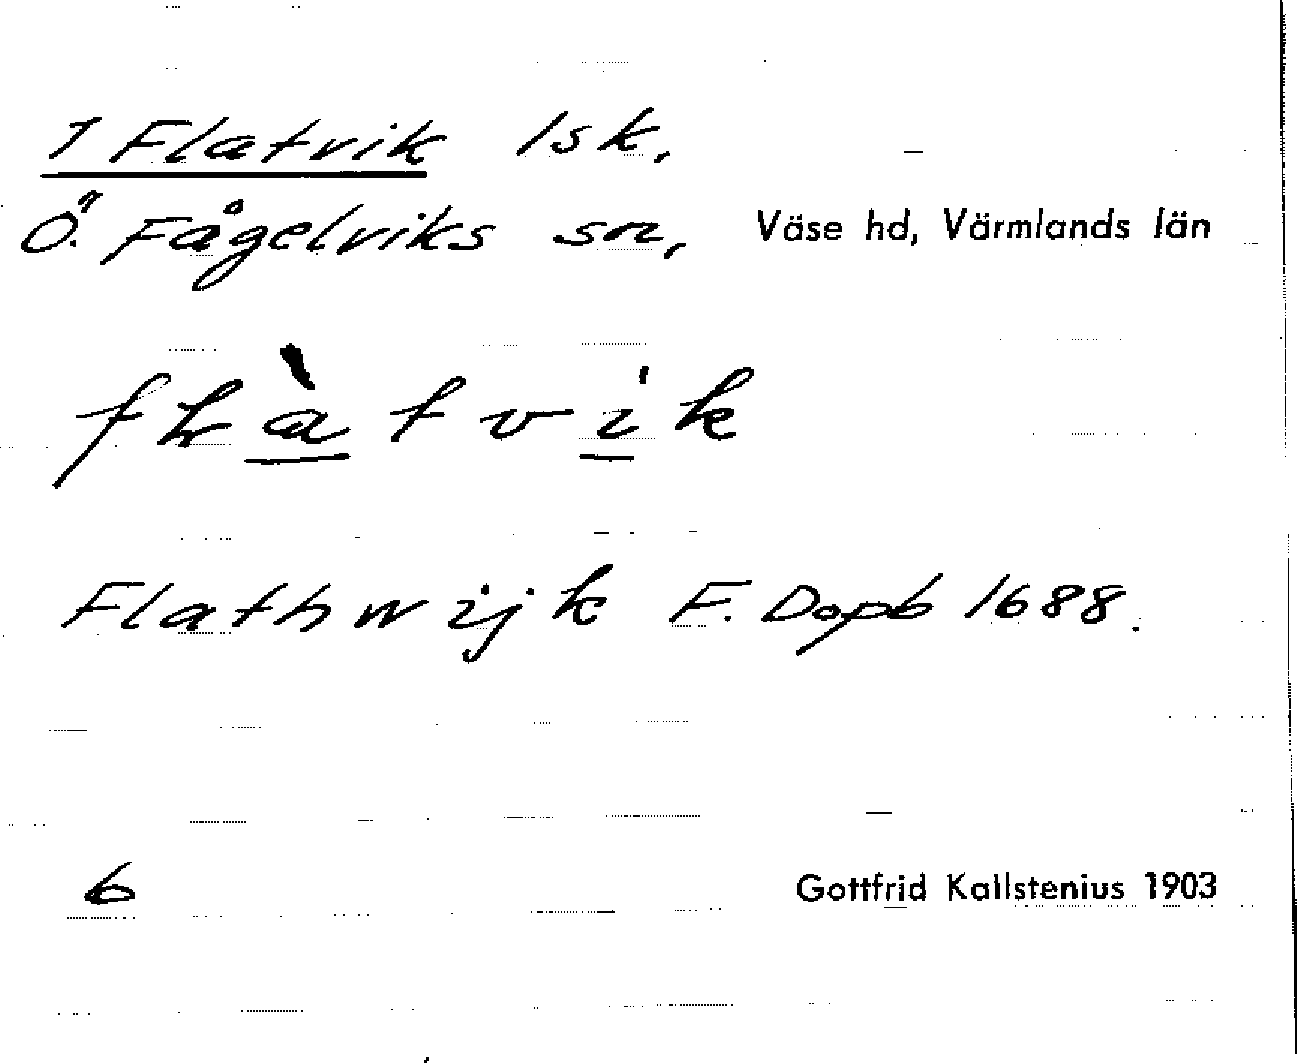 1 Flatvik lsk.
Ö. Fågelviks sn, Väse hd, Värmlands län
flàtvik
Flathwijk F. Dopb 1688.
6
Gottfrid Kallstenius 1903